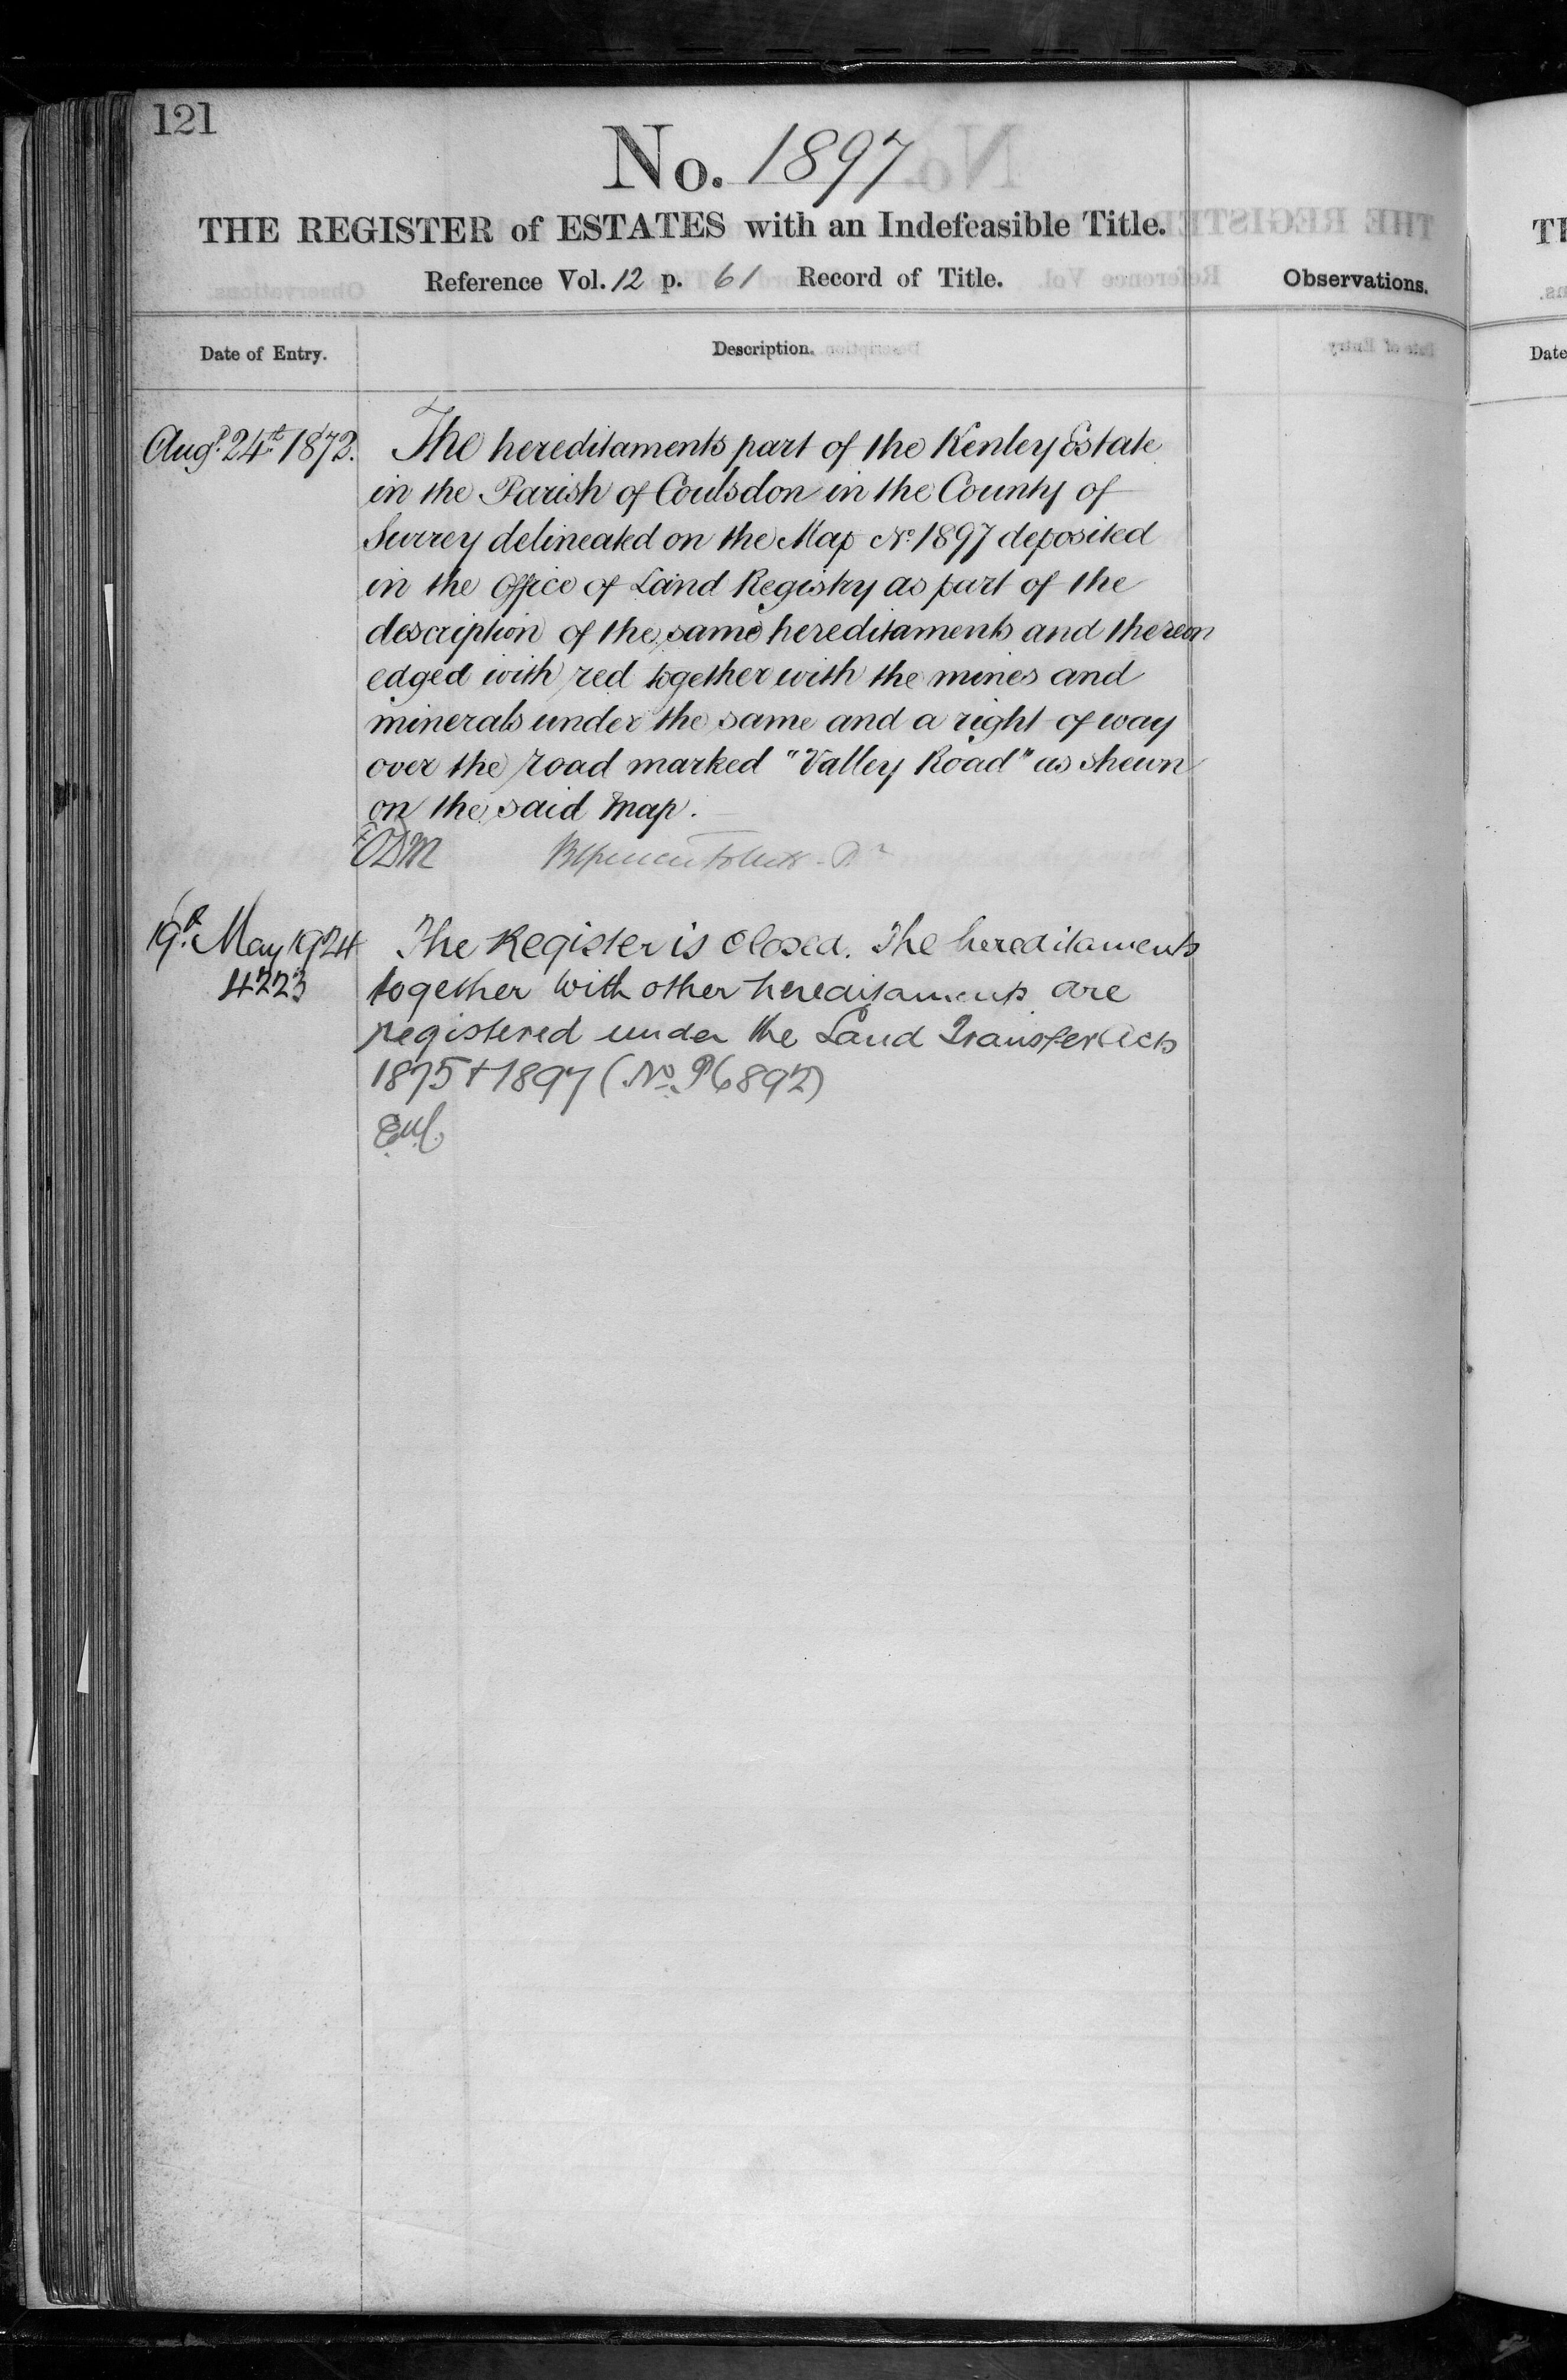 121
No. 1897
THE REGISTER of ESTATES with an Indefeasible Title.
Reference Vol. 12 p. 61 Record of Title.
Observations.
Date of Entry.
Description.
Augt. 24th 1872.
The hereditaments part of the Kenley Estate
in the Parish of Coulsdon in the County of
Surrey delineated on the Map No. 1897 deposited
in the Office of Land Registry as part of the
description of the same hereditaments and thereon
edged with red together with the mines and
minerals under the same and a right of way
over the road marked "Valley Road" as shewn
on the said Map.
19th May 1924
4223
The Register is closed. The hereditaments
together with other hereditaments are
registered under the Land Transfer Acts
1875 + 1897 (No. P6892)